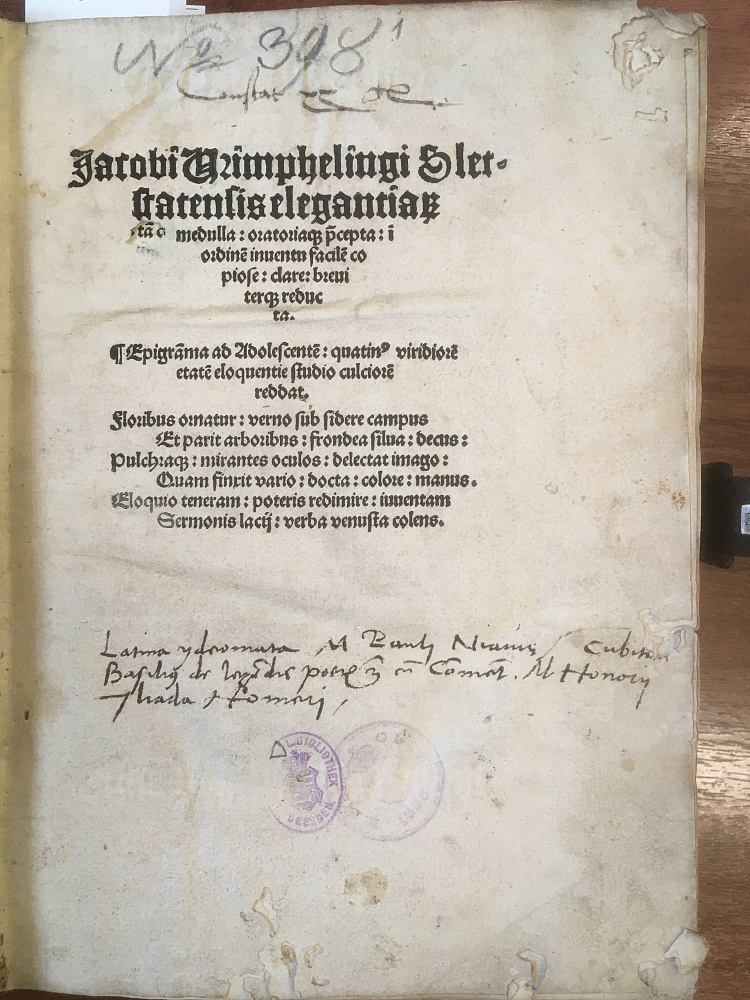 No 398 1
Constat
Jacobi Wimphelingi Slet-
statensis elegantiaꝝ
medulla: oratoriaqꝫ p̄cepta: ī
ordinē inuentu facilē co
piose: clare: breui
terqꝫ reduc
ta.
¶ Epigrāma ad Adolescentē: quatinꝰ viridiorē
etatē eloquentie studio culciorē
reddat.
Floribus ornatur: verno sub sidere campus
Et parit arboribus: frondea silua: decus:
Pulchraqꝫ: mirantes oculos: delectat imago:
Quam finxit vario: docta: colore: manus.
Eloquio teneram: poteris redimire: iuuentam
Sermonis lacij: verba venusta colens.
Latina ydeomata M Pauli Niauis
Basilius de leḡdis poetis cū Com̄et. M Honorij
Iliada Homeri
BIBLIOTHEK
DRESDEN